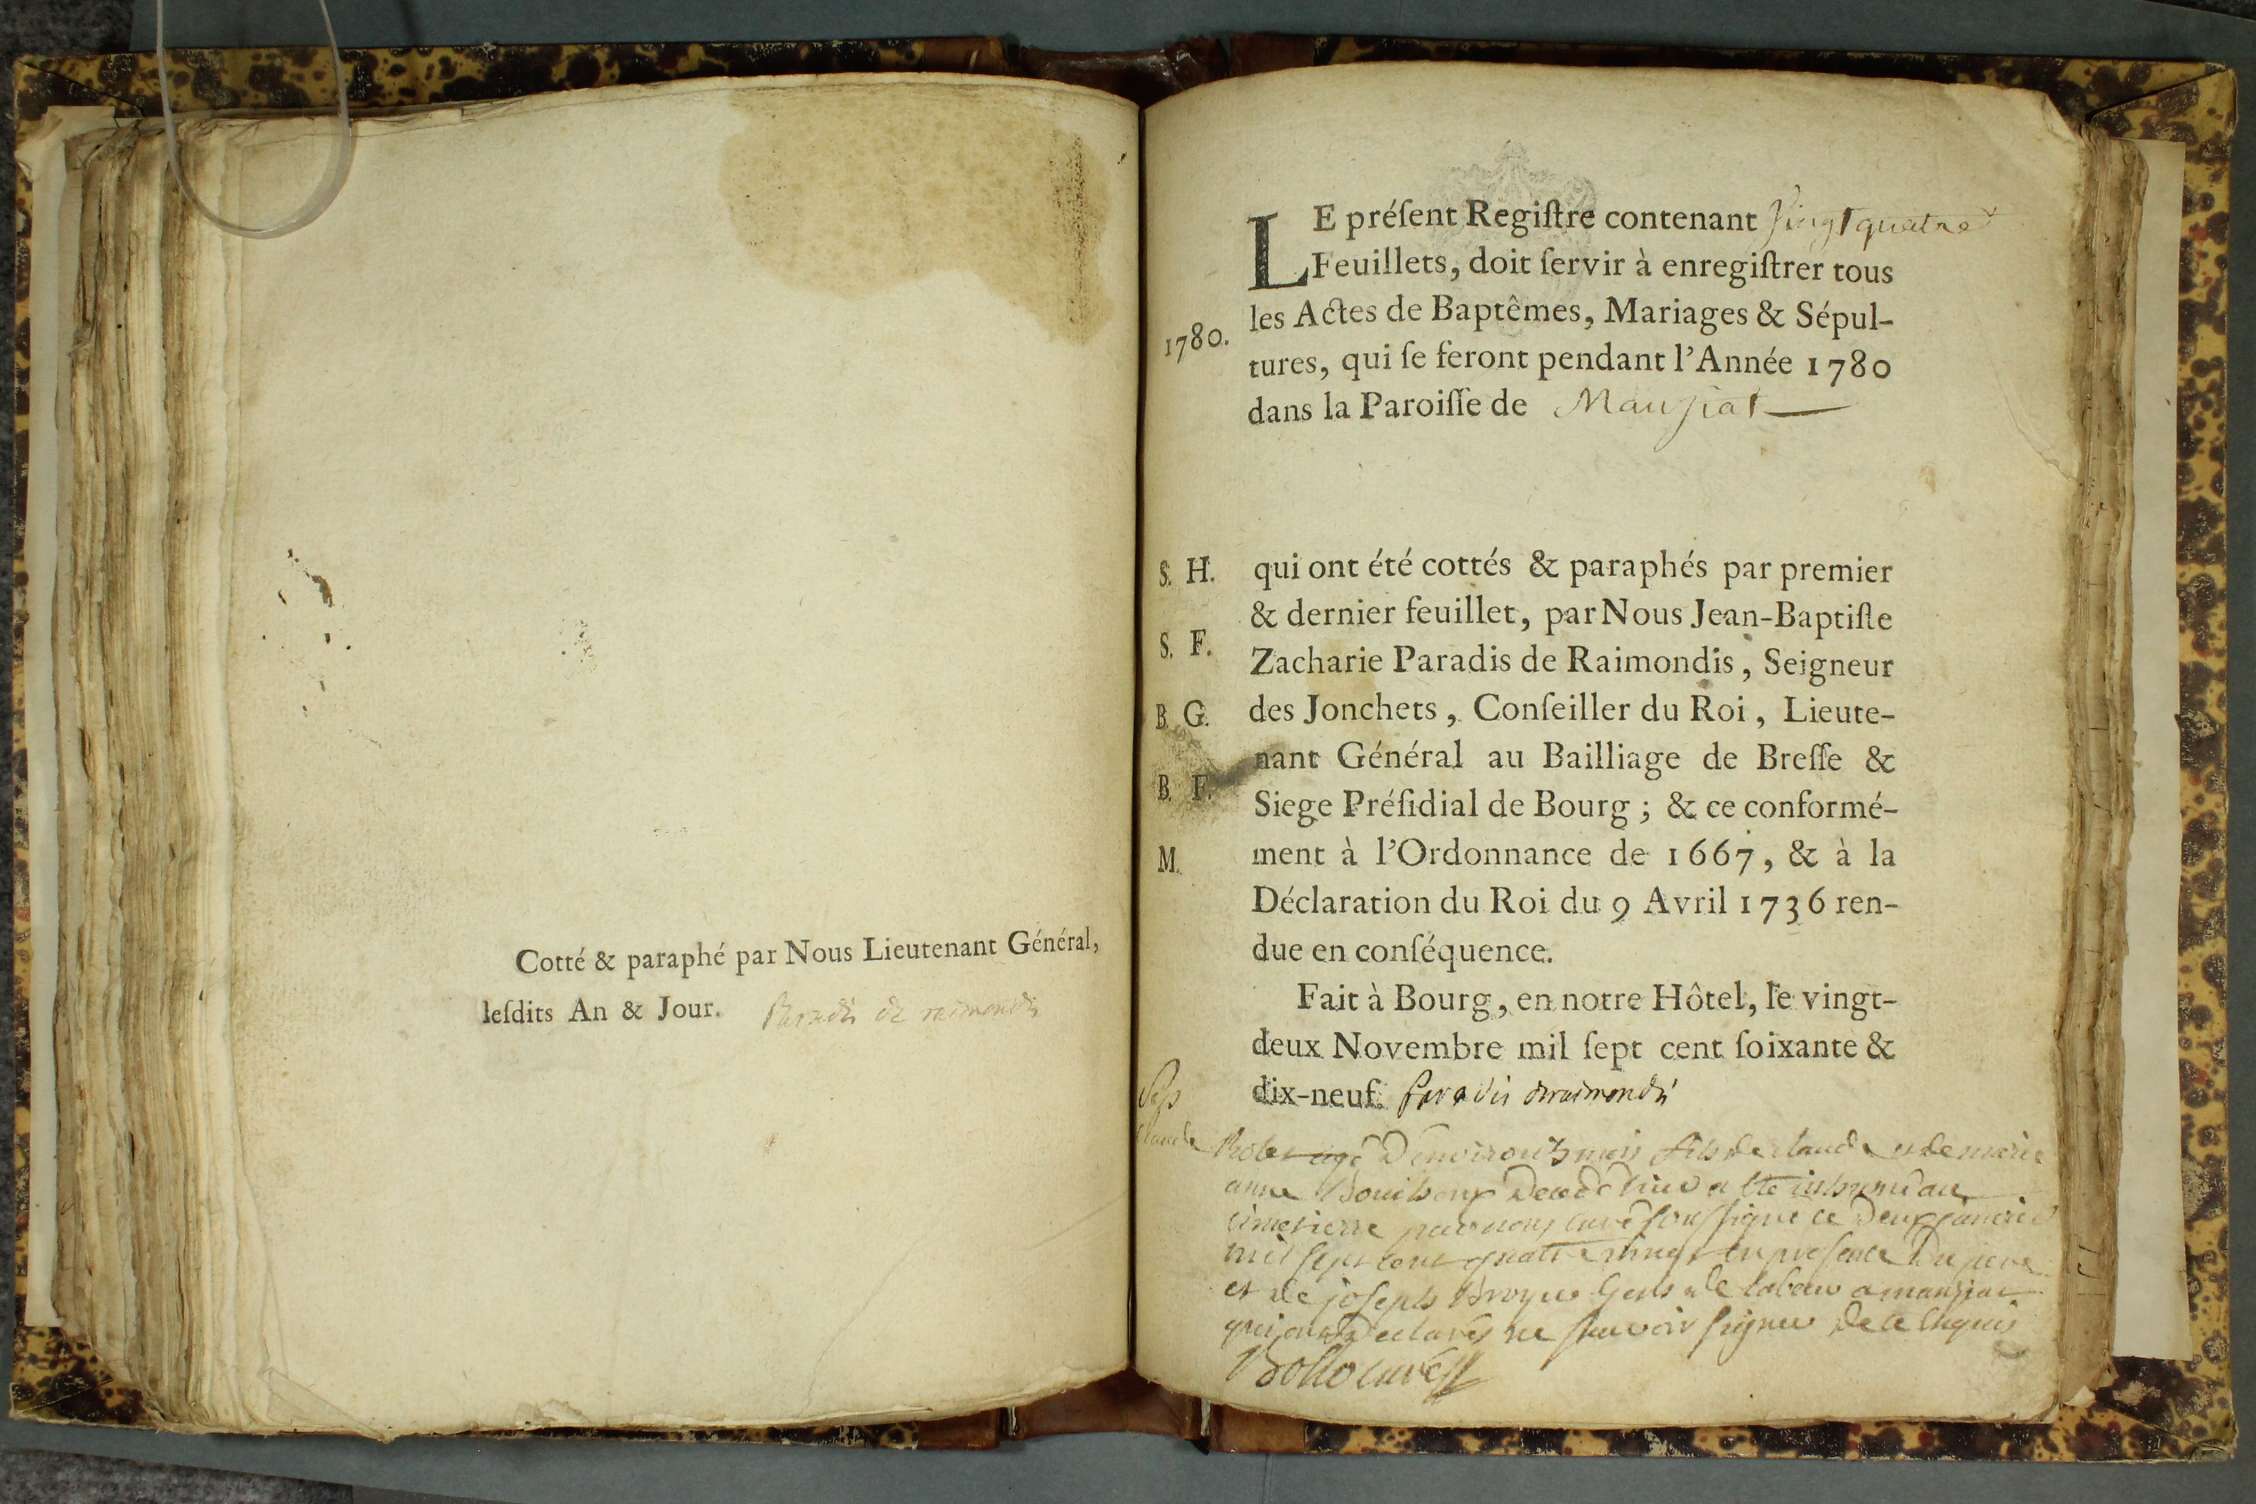 Cotté & paraphé par Nous Lieutenant Général,
leſdits An & Jour. Paradis de raimondis
LE préſent Regiſtre contenant Vingt quatre
Feuillets, doit ſervir à enregiſtrer tous
les Actes de Baptêmes, Mariages & Sépul-
1780.
tures, qui ſe feront pendant l'Année 1780
dans la Paroiſſe de Manziat
S. H. qui ont été cottés & paraphés par premier
& dernier feuillet, par Nous Jean-Baptiſte
S. F. Zacharie Paradis de Raimondis, Seigneur
B. G. des Jonchets, Conſeiller du Roi, Lieute-
nant Général au Bailliage de Breſſe &
B. F. Siege Préſidial de Bourg; & ce conformé-
M. ment à l'Ordonnance de 1667, & à la
Déclaration du Roi du 9 Avril 1736 ren-
due en conſéquence.
Fait à Bourg, en notre Hôtel, le vingt-
deux Novembre mil ſept cent ſoixante &
dix-neuf. Paradis de raimondis
Claude agé D'environ mois fils de claude et de marie
anne Decedé hier a eté inhumé au
cimetierre par nous curé soussigné ce Deux janvier
mil sept cent quatre vingt en presence Du pere
et de joseph Broyer Gens de labeur a manziat
qui ont Declarés ne scavoir signer De ce Enquis
curé